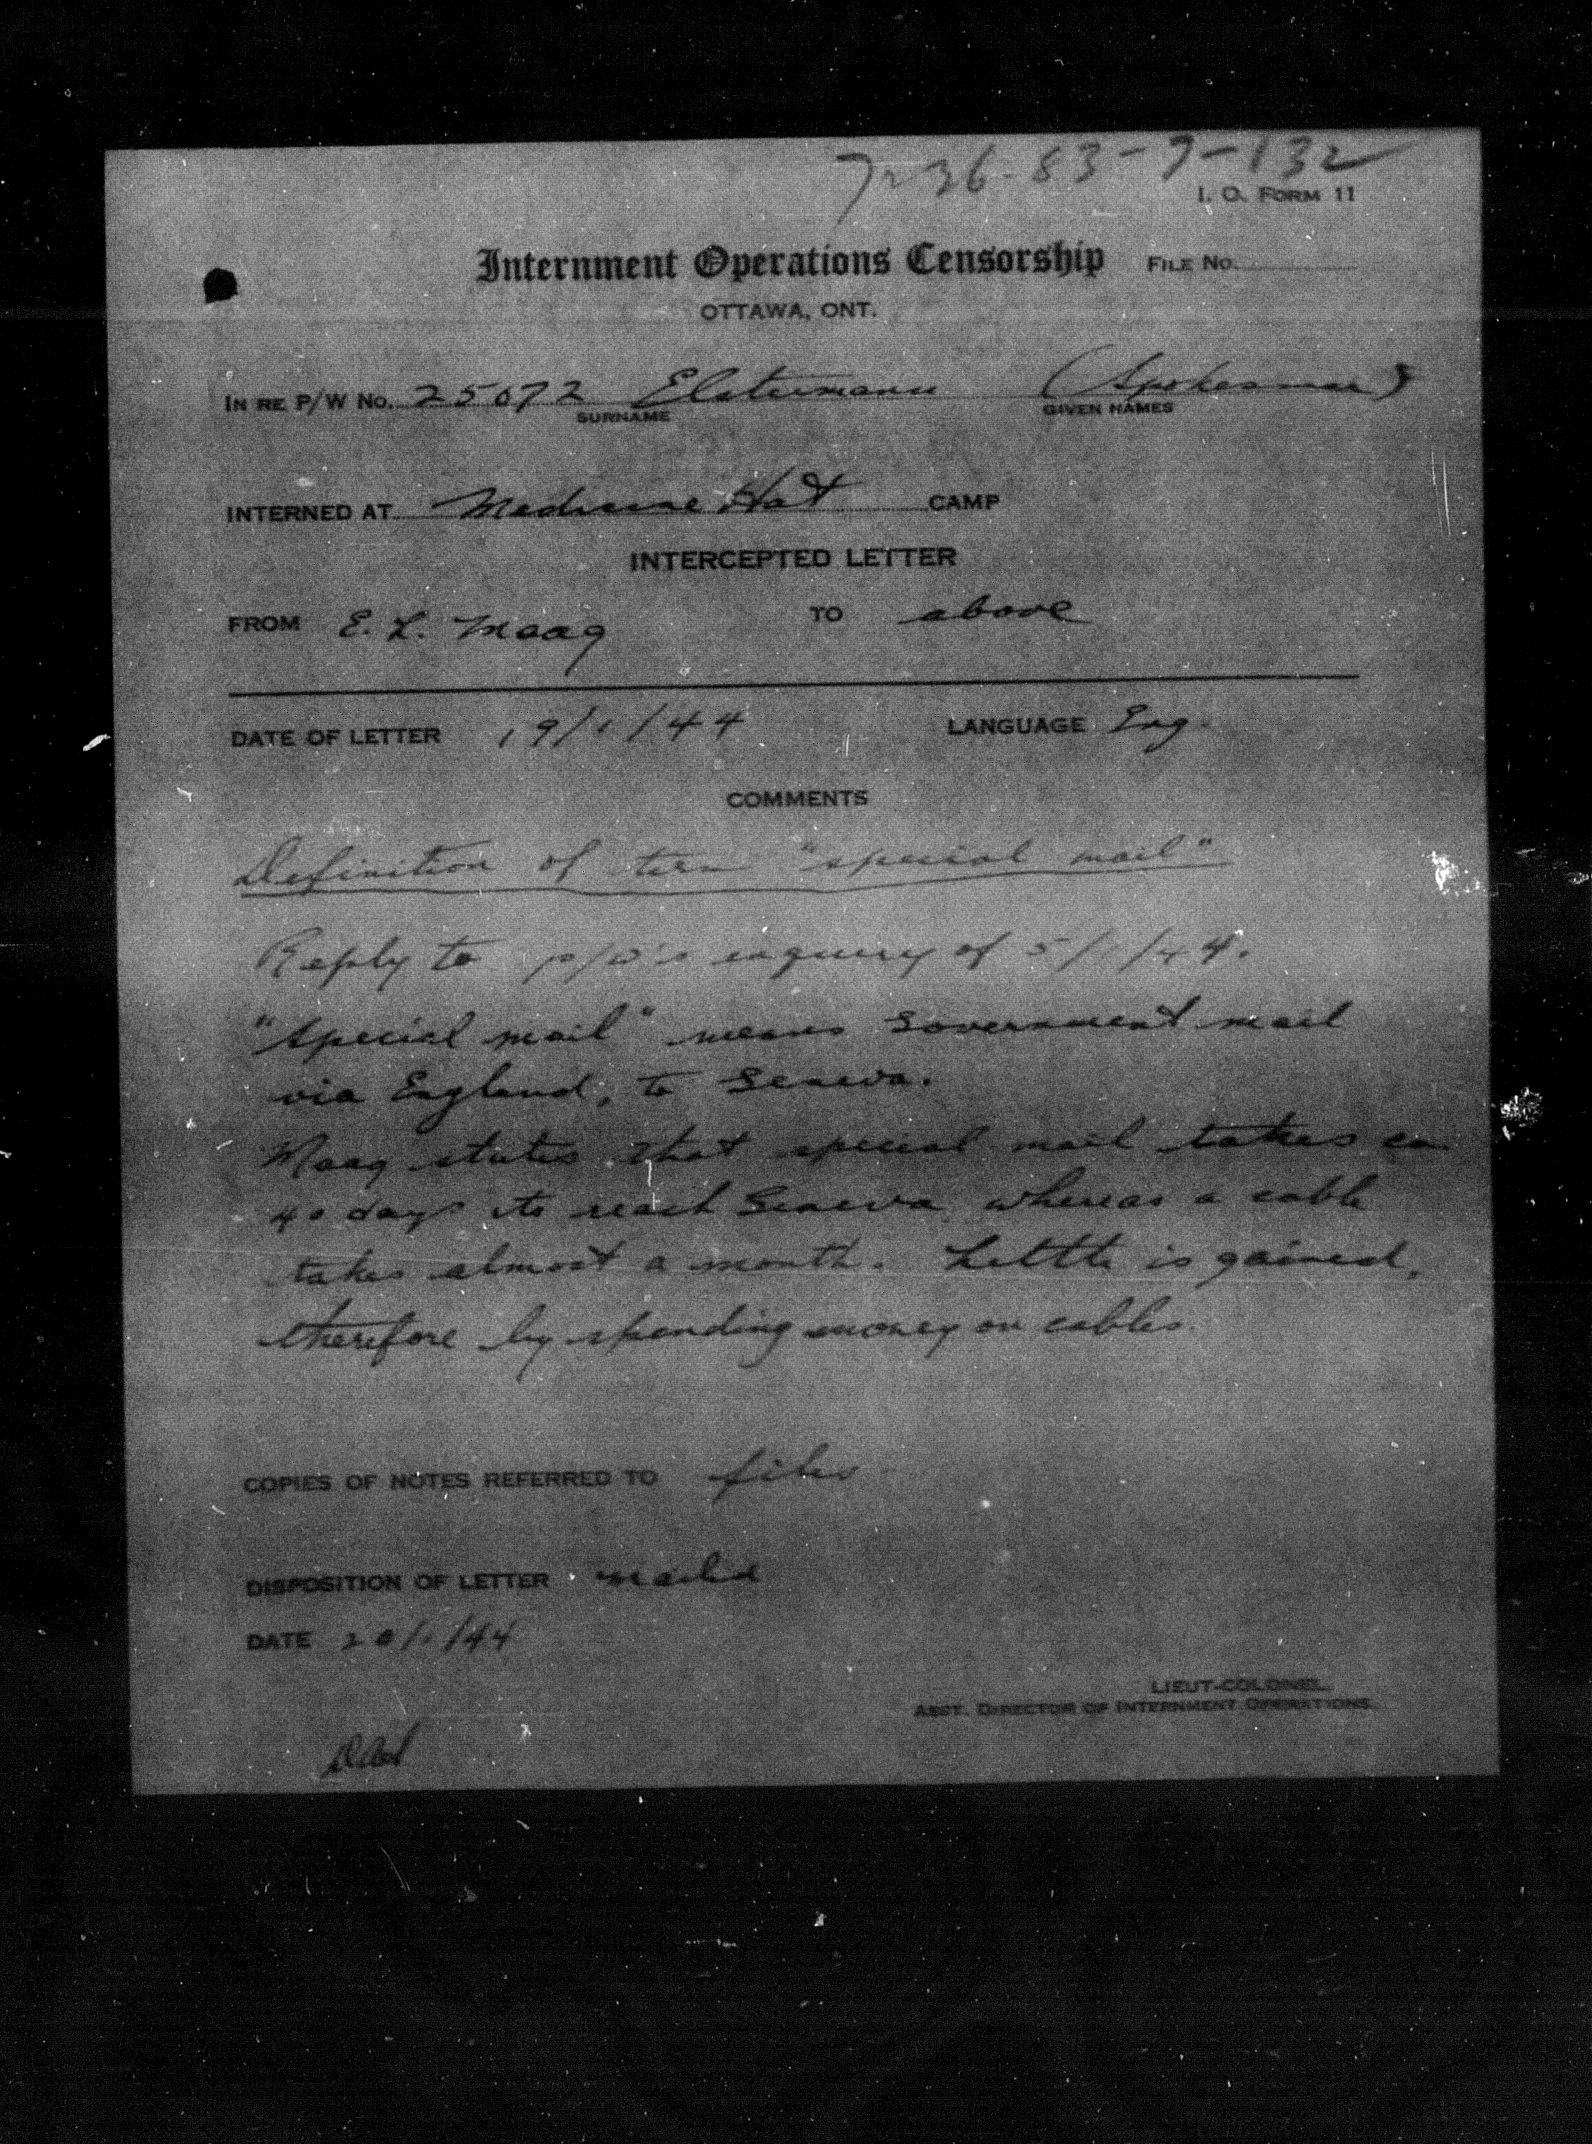 7-36-83-7-132
I. O. FORM 11
Internment Operations Censorship FILE No.
OTTAWA, ONT.
IN RE P/W No. 25072 Elstermann (Spokesman)
SURNAME GIVEN NAMES
INTERNED AT Medicine Hat CAMP
INTERCEPTED LETTER
FROM E. L. Maag TO above
DATE OF LETTER 19/1/44 LANGUAGE Eng.
COMMENTS
Definition of term "special mail"
Reply to p/w's enquiry of 5/1/44.
"Special mail" means Government mail
via England, to Geneva.
Maag states that special mail takes ca
40 days to reach Geneva whereas a cable
takes almost a month. Little is gained,
therefore by spending money on cables.
COPIES OF NOTES REFERRED TO files
DISPOSITION OF LETTER mailed
DATE 20/1/44
LIEUT-COLONEL
ASST. DIRECTOR OF INTERNMENT OPERATIONS.